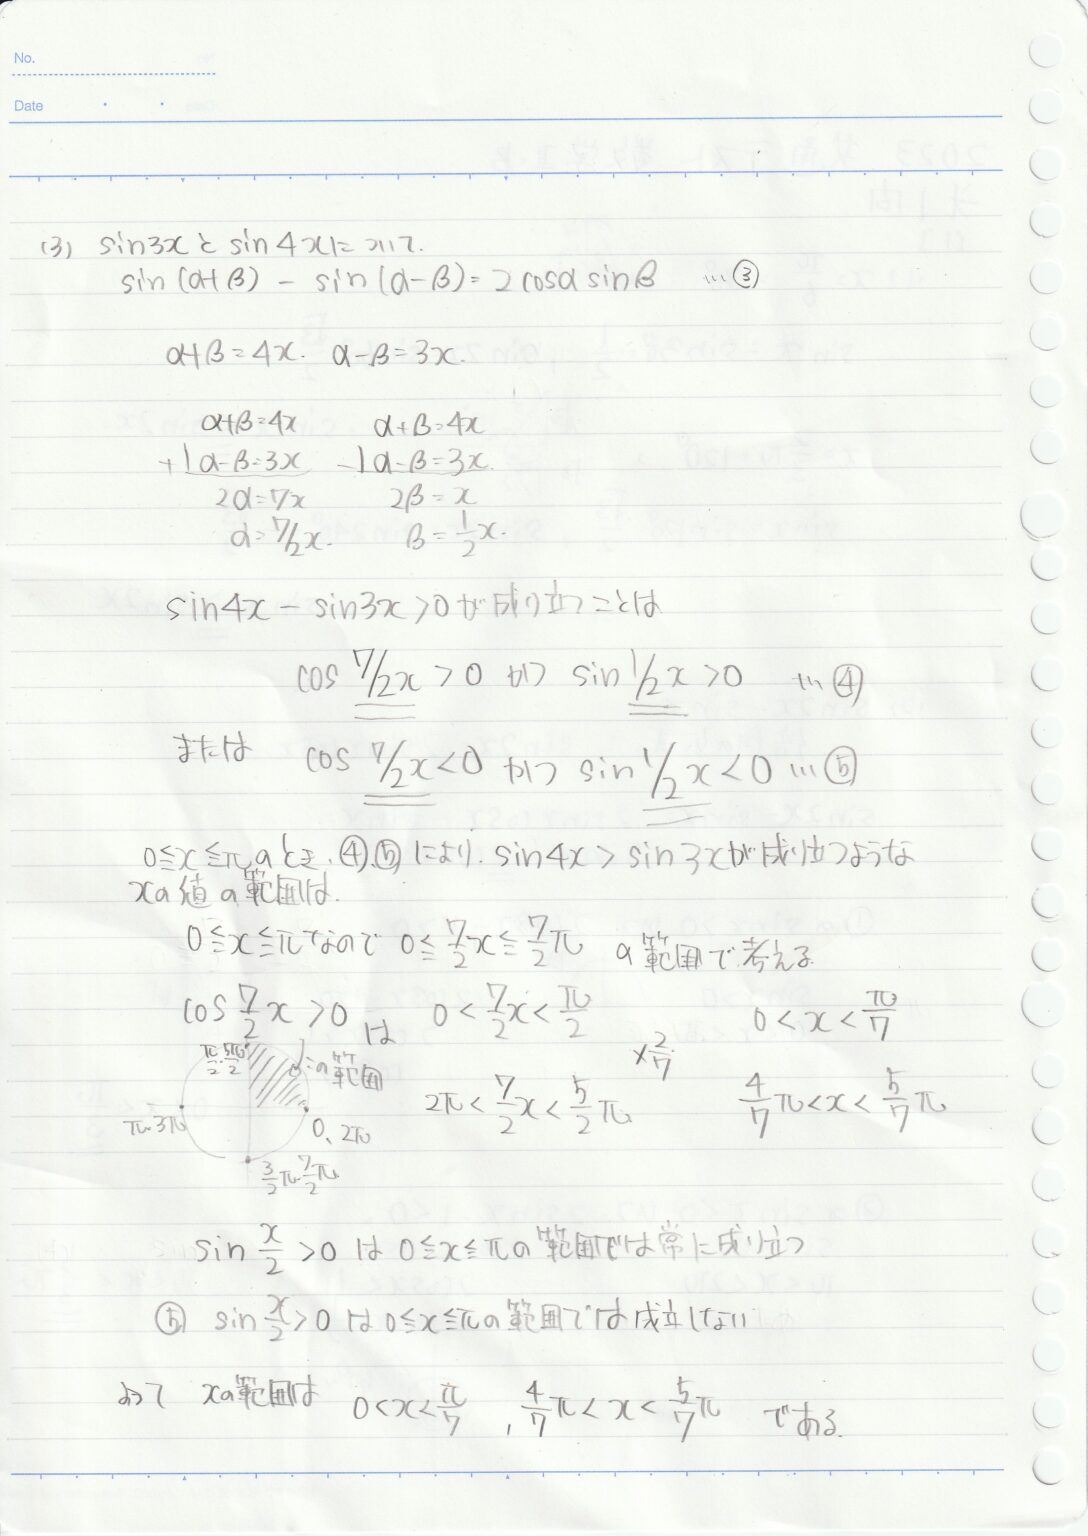 No.
Date
(3) sin3xとsin4xについて.
sin(α+β) - sin(α-β) = 2cosα sinβ …③
α+β=4x. α-β=3x.
α+β=4x α+β=4x
+) α-β=3x -) α-β=3x.
2α=7x 2β=x
α=7/2x. β=1/2x.
sin4x - sin3x>0が成り立つことは
cos 7/2x > 0 かつ sin 1/2x > 0 …④
または cos 7/2x < 0 かつ sin 1/2x < 0 …⑤
0≦x≦πのとき、④,⑤により. sin4x > sin3xが成り立つような
xの値の範囲は.
0≦x≦πなので 0≦7/2x≦7/2π の範囲で考える
cos 7/2 x > 0 は 0<7/2x<π/2 0<x<π/7
π/2・5π/2 この範囲 ×2/7
2π<7/2x<5/2π 4/7π<x<5/7π
π・3π 0、2π
3/2π・7/2π
sin x/2 > 0 は 0≦x≦πの範囲では常に成り立つ
⑤ sin x/2 > 0 は 0≦x≦πの範囲では成立しない
よって xの範囲は 0<x<π/7 , 4/7π<x<5/7π である.